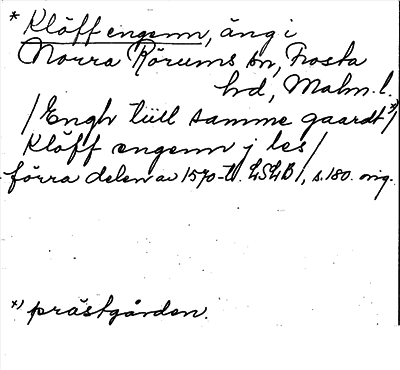 * Klöff engenn, äng i
Norra Rörums sn, Frosta
hd, Malm. l.
/Engh tiill samme gaardt*)/
Klöff engenn j les/
förra delen av 1570-t. LSLB/, s. 180. orig.
*) prästgården.